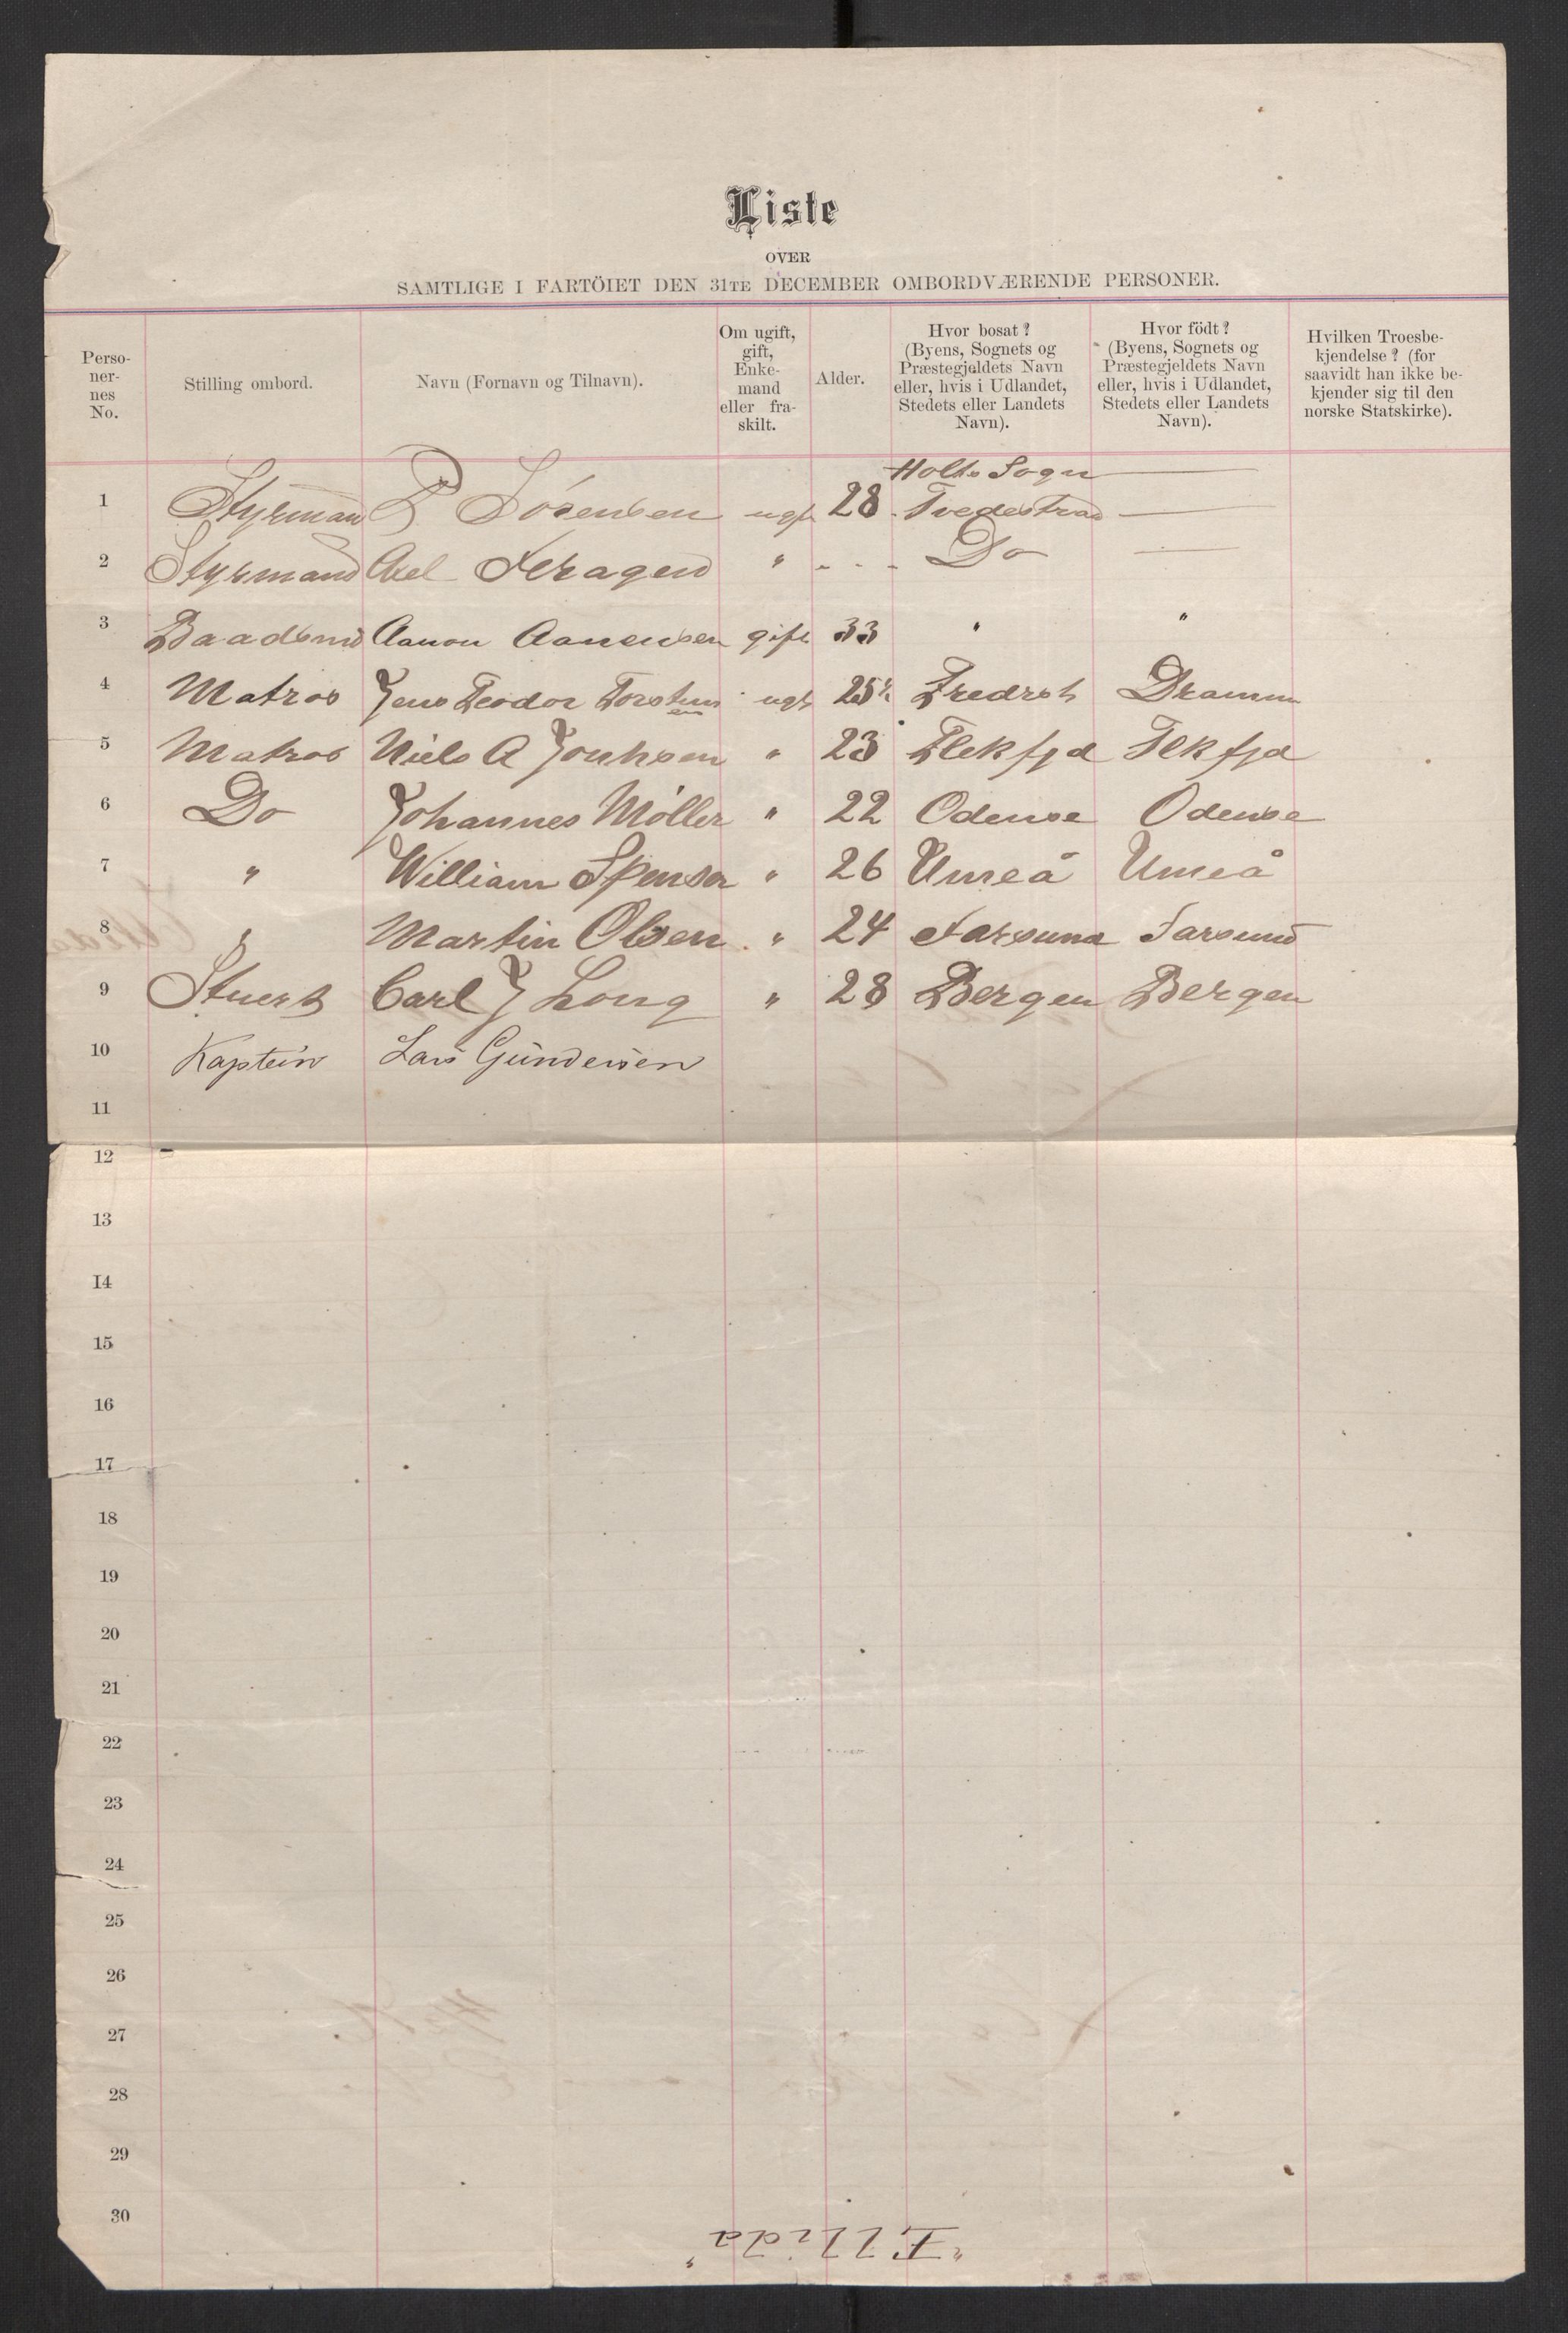 Liste
OVER
SAMTLIGE I FARTÖIET DEN 31TE DECEMBER OMBORDVÆRENDE PERSONER.
Perso-
ner-
nes
No.
Stilling ombord.
Navn (Fornavn og Tilnavn).
Om ugift,
gift,
Enke-
mand
eller fra-
skilt.
Alder.
Hvor bosat?
(Byens, Sognets og
Præstegjeldets Navn
eller, hvis i Udlandet,
Stedets eller Landets
Navn).
Hvor födt?
(Byens, Sognets og
Præstegjeldets Navn
eller, hvis i Udlandet,
Stedets eller Landets
Navn).
Hvilken Troesbe-
kjendelse? (for
saavidt han ikke be-
kjender sig til den
norske Statskirke).
Holts Sogn
1 Styrman P Sörensen ugft 28 Tvedestran
2 Styrmand Axel " Do
3 Baadsmd Aanon Aanensen gift 33 " "
4 Matros Jens Teodor Torstensen ugft 25½ Fredrst Dramm
5 Matros Niels A Jonhsen " 23 Flekfjd Flkfjd
6 Do Johannes Möller " 22 Odense Odense
7 " William Spenser " 26 Umeå Umeå
8 " Martin Olsen " 24 Farsund Farsund
9 Stuert Carl J Long " 28 Bergen Bergen
10 Kaptein Lars Gundersen
11
12
13
14
15
16
17
18
19
20
21
22
23
24
25
26
27
28
29
30
"Ellida"